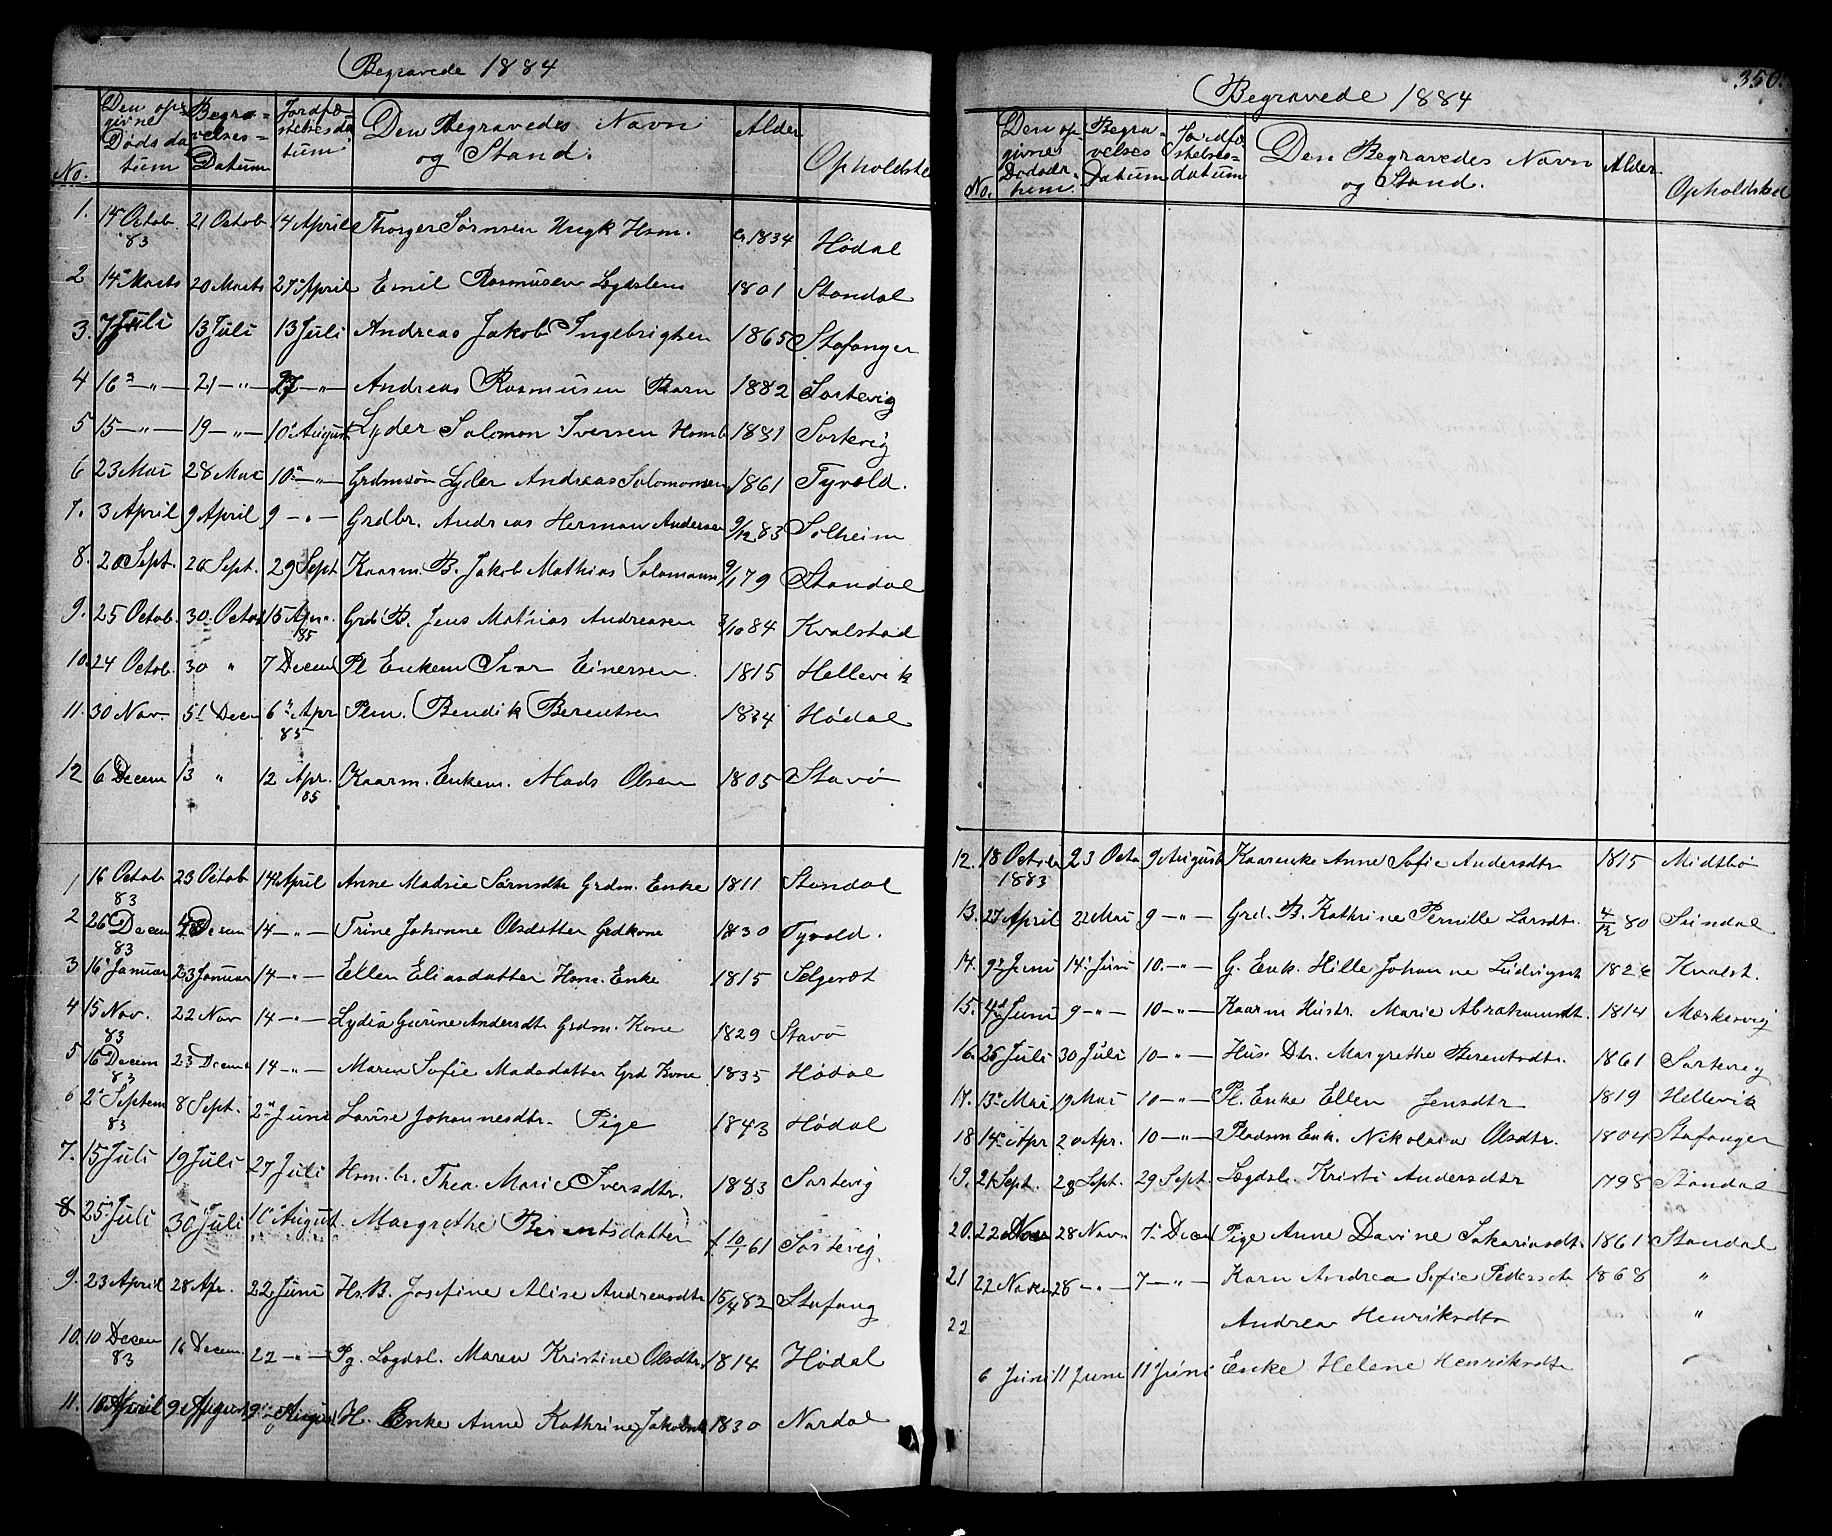 Begravede 1884
No. Den opgivne Dødsdatum Begravelses-Datum Jordfæstelsesdatum Den Begravedes Navn og Stand. Alder Opholdste
1. 15 Octob. 83 21 Octob 14 April Thorger Sørnsen Hsm. 1834 Hødal
2 14 Marts 20 Marts 27 April Emil Rasmusen Lgdslem 1801 Standal
3. 7 Juli 13 Juli 13 Juli Andreas Jakob Ingebrigtsen 1865 Stafanger
4 16 -"- 21 -"- 27 -"- Andreas Rasmusen Barn 1882 Sortevig
5 15 -"- 19 -"- 10 August Lyder Solomon Iversen Hsmb 1881 Sortevig
6 23 Mai 28 Mai 10 -"- Grdmsøn Lyder Andreas Solomonsen 1861 Tyvold.
7. 3 April 9 April 9 -"- Grdbr. Andreas Herman Andersen 9/12 83 Solheim
8. 20 Sept. 26 Sept. 29 Sept Kaarm. B. Jakob Mathias Solomonn 9/1 79 Standal
9. 25 Octob. 30 Octob 15 Apr. 85 Grd B. Jens Mathias Andreasen 3/10 84 Kvalstad
10. 24 Octob. 30 " 7 Decem Pl Enkem Ivar Einersen. 1815 Hellevik
11. 30 Nov. 5 Decem 6 Apr 85 Plm. Bendik Berentsen 1834 Hødal
12 6 Decem 13 " 12 Apr. 85 Kaarm. Enkem. Mads Olsen 1805 Stavø
1 16 Octob 83 23 Octob 14 April Anne Madsie Sørnsdtr Grdm. Enke 1811 Standal
2 26 Decem 83 Decem 14 -"- Trine Johanne Olsdatter Grdkone 1830 Tyvold.
3 16 Januar 23 Januar 14 -"- Ellen Eliasdatter Hsm. Enke 1815
4 15 Nov. 83 22 Nov 14 -"- Lydia Gurine Andersdtr Grdm. Kone 1829 Stavø
5 16 Decem 83 23 Decem 14 -"- Maren Sofie Madsdatter Grd Kone 1835 Hødal
6 2 Septem 83 8 Sept. 2 Juni Lovise Johannesdtr. Pige 1843 Hødal
7. 15 Juli 19 Juli 27 Juli Hsm. br. Thea. Marie Iversdtr. 1883 Sortevig
8 25 Juli 30 Juli 10 August. Margrethe Berentsdatter f. 10/1 61 Sortevig.
9. 23 April 28 Apr. 22 Juni Hs. B. Josefine Alise Andreasdtr 15/4 82 Stafang
10. 10 Decem 83 16 Decem. 22 -"- Pg. Legdsl. Maren Kristine Olsdtr. 1814 Hødal
11. 16 April 9 August H. Enke Anne Kathrine 1830 Nordal
350.
Begravede 1884
No. Den opgivne Dødsdatum Begravelses Datum Jordfæstelsesdatum Den Begravedes Navn og Stand. Alder Opholdsted
12. 18 Octob 1883 23 Octo 9 August Kaarenke Anne Sofie Andersdtr 1815 Midtbø
13. 27 April 2 Mai 9 -"- Grd. B. Kathrine Pernille Larsdtr. 4/12 80 Seindal
14. 9 Juni 14 Juni 10. -"- G. Enk. Hille Johanne Ludvigsdt 182 Kvalst.
15. 4 Juni 9 -"- 10 -"- Kaarm Hustr. Marie Abrahamsdtr. 1814 Mørkevig
16. 25 Juli 30 Juli 10 -"- Hus. Dtr. Margrethe Berentsdtr. 1861 Sortevig
17. 13 Mai 19 Mai 10 -"- Pl. Enke Ellen Jensdtr 1819 Hellevik
18 14 Apr 20 Apr. 10 -"- Pladsm Enk. Nikolaia Olsdtr. 1804 Stafanger
19. 21 Sept. 28 Sept. 29 Sept. Lægdsl. Kristi Andersdtr 1798 Standal
20. 22 Nov 28 Nov. 7 Decem Pige Anne Davine Sakariasdtr. 1861 Standal
21 22 Novem 28 -"- 7 -"- Karn Andrea Sofie Pedersdtr 1868 "
22 Andrea Henriksdtr "
6 Juni 11 Juni 11 Juni Enke Helene Henriksdtr "